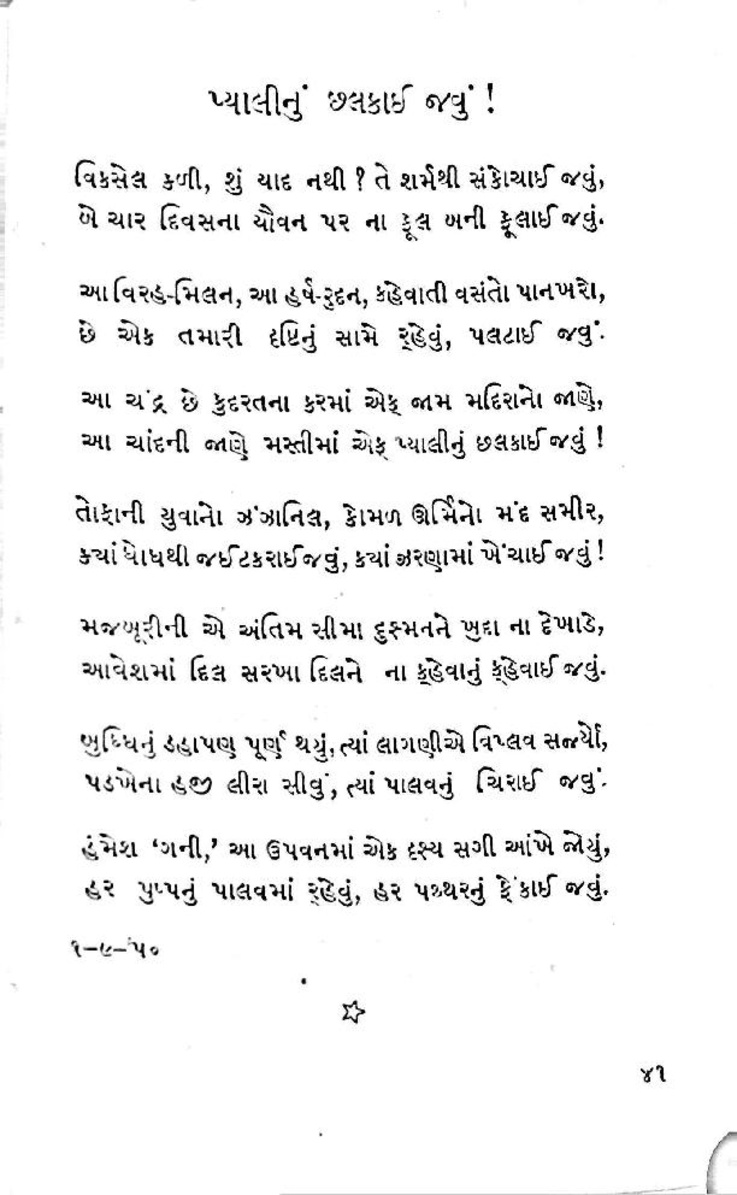 પ્યાલીનું છલકાઈ જવું !
વિકસેલ કળી, શું યાદ નથી ? તે શર્મથી સંકોચાઈ જવું,
બે ચાર દિવસના યૌવન પર ના ફૂલ બની ફૂલાઈ જવું.
આ વિરહ-મિલન, આ હર્ષ-રુદન, કહેવાતી વસંતો પાનખરો,
છે એક તમારી દૃષ્ટિનું સામે ર્‌હેવું, પલટાઈ જવું.
આ ચંદ્ર છે કુદરતના કરમાં એક જામ મદિરાનો જાણે,
આ ચાંદની જાણે મસ્તીમાં એક પ્યાલીનું છલકાઈ જવું !
તોફાની યુવાનો ઝંઝાનિલ, કોમળ ઊર્મિનો મંદ સમીર,
ક્યાં ધોધથી જઈ ટકરાઈ જવું, ક્યાં ઝરણામાં ખેંચાઈ જવું !
મજબૂરીની એ અંતિમ સીમા દુશ્મનને ખુદા ના દેખાડે,
આવેશમાં દિલ સરખા દિલને ના ક્‌હેવાનું ક્‌હેવાઈ જવું.
બુધ્ધિનું ડહાપણ પૂર્ણ થયું, ત્યાં લાગણીએ વિપ્લવ સર્જ્યો,
પડખેના હજી લીરા સીવું, ત્યાં પાલવનું ચિરાઈ જવું.
હંમેશ ‘ગની,’ આ ઉપવનમાં એક દૃશ્ય સગી આંખે જોયું,
હર પુષ્પનું પાલવમાં ર્‌હેવું, હર પથ્થરનું ફેંકાઈ જવું.
૧–૯–'૫૦
☆
૪૧